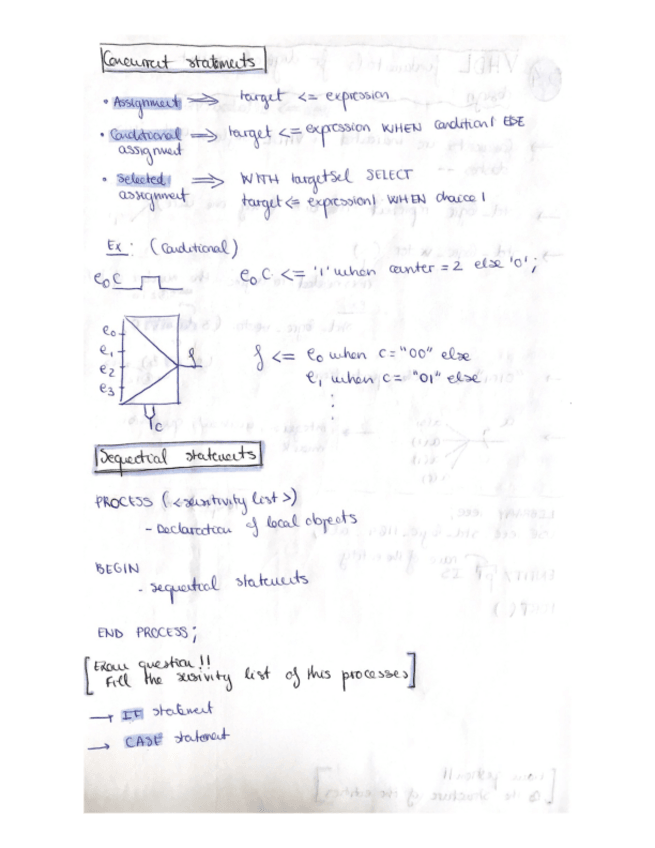 Concurrent statements
• Assignment ⟹ target <= expression
• Conditional assignment ⟹ target <= expression WHEN condition1 ELSE
• Selected assignment ⟹ WITH targetsel SELECT
target <= expression1 WHEN choice1
Ex: (Conditional)
eoC
eoC <= '1' when counter = 2 else '0';
e0
e1
e2
e3
f
c
f <= e0 when c = "00" else
e1 when c = "01" else
⋮
Sequential statements
PROCESS (<sensitivity list>)
- Declaration of local objects
BEGIN
- sequential statements
END PROCESS;
[Exam question!!
Fill the sensivity list of this processes]
→ IF statement
→ CASE statement